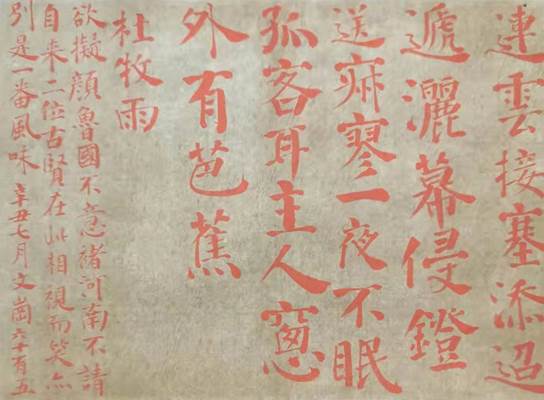 連雲接塞添迢
遞灑幕侵鐙
送寂寥一夜不眠
孤客耳主人窻
外有芭蕉
杜牧雨
欲擬顏魯國不意褚河南不請
自来二位古賢在此相視而笑亦
別是一番風味辛丑七月文崗六十有五